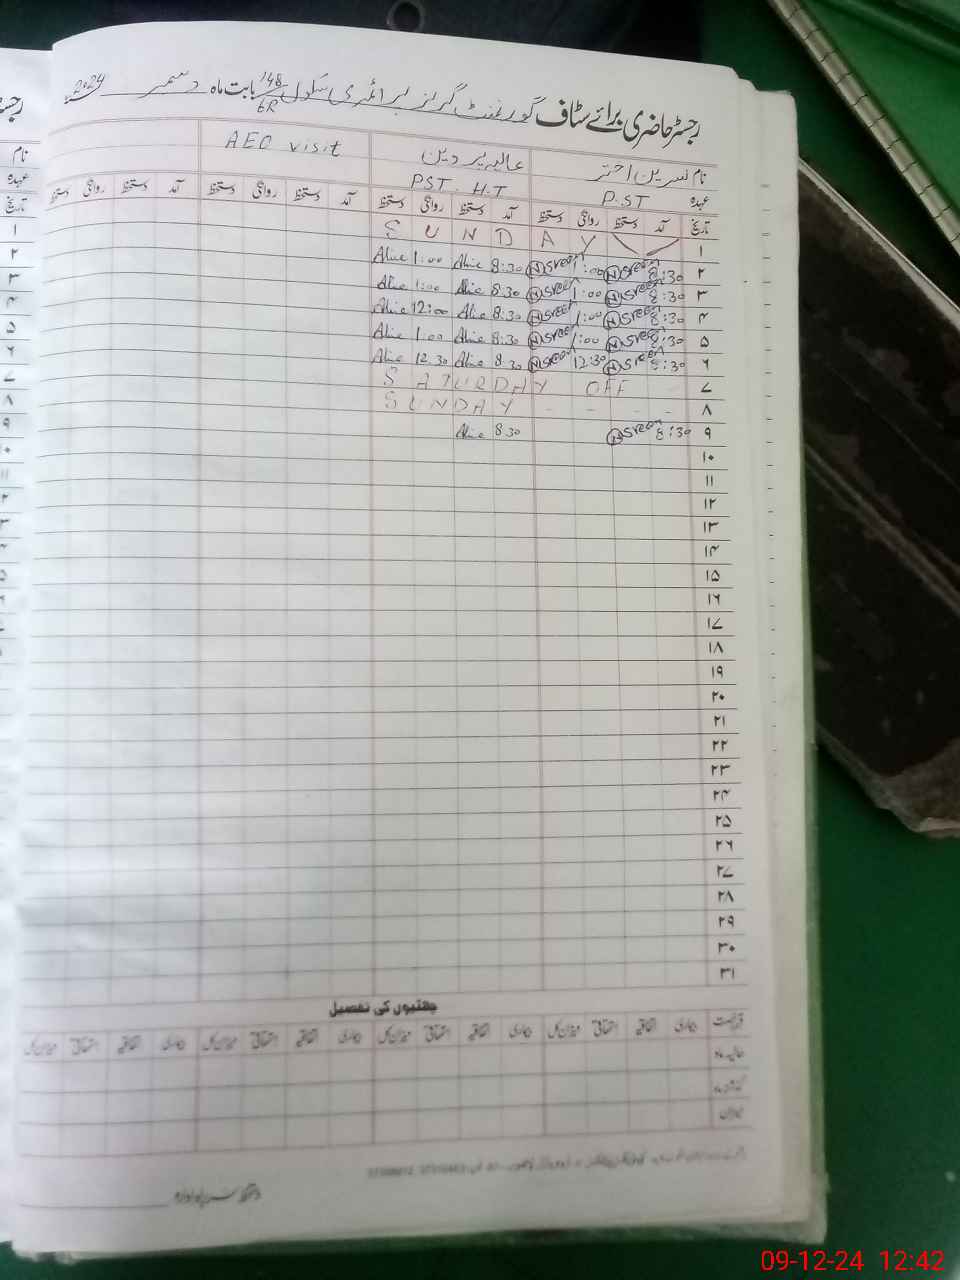 رجسٹر حاضری برائے سٹاف گورنمنٹ گرلز پرائمری سکول 148/6R بابت ماہ دسمبر 2024
نام نسرین اختر عالیہ پروین AEO visit
عہدہ P.ST PST. H.T
تاریخ آمد دستخط روانگی دستخط آمد دستخط روانگی دستخط آمد دستخط روانگی دستخط آمد دستخط روانگی دستخط
۱ S U N D A Y
۲ 8:30 Nsreen 1:00 Nsreen 8:30 Alie 1:00 Alie
۳ 8:30 Nsreen 1:00 Nsreen 8:30 Alie 1:00 Alie
۴ 8:30 Nsreen 1:00 Nsreen 8:30 Alie 12:00 Alie
۵ 8:30 Nsreen 1:00 Nsreen 8:30 Alie 1:00 Alie
۶ 8:30 Nsreen 12:30 Nsreen 8:30 Alie 12:30 Alie
۷ S A T U R D A Y OFF
۸ S U N D A Y - - - - -
۹ 8:30 Nsreen 8:30 Alie
۱۰
۱۱
۱۲
۱۳
۱۴
۱۵
۱۶
۱۷
۱۸
۱۹
۲۰
۲۱
۲۲
۲۳
۲۴
۲۵
۲۶
۲۷
۲۸
۲۹
۳۰
۳۱
چھٹیوں کی تفصیل
بیماری اتفاقیہ استحقاقی میزان کل بیماری اتفاقیہ استحقاقی میزان کل بیماری اتفاقیہ استحقاقی میزان کل بیماری اتفاقیہ استحقاقی میزان کل
حالیہ ماہ
گذشتہ ماہ
میزان
دستخط سربراہ ادارہ
09-12-24 12:42